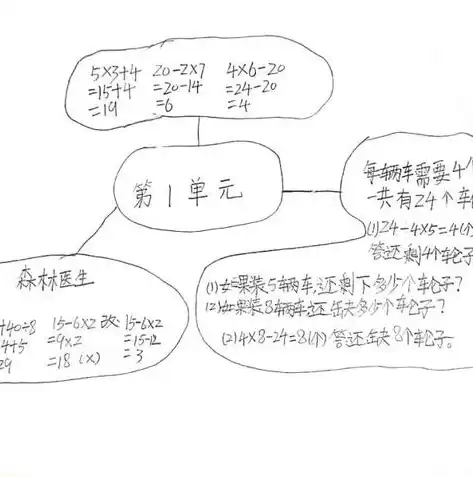 5×3+4 20-2×7 4×6-20
=15+4 =20-14 =24-20
=19 =6 =4
第1单元
每辆车需要4个
一共有24个车
(1)24-4×5=4(个
答还剩4个车轮子
(1)如果装5辆车,还剩下多少个车轮子?
(2)如果装8辆车还缺多少个车轮子?
(2)4×8-24=8(个) 答还缺8个车轮子。
森林医生
+40÷8 15-6×2 改: 15-6×2
4+5 =9×2 =15-12
29 =18 (×) =3